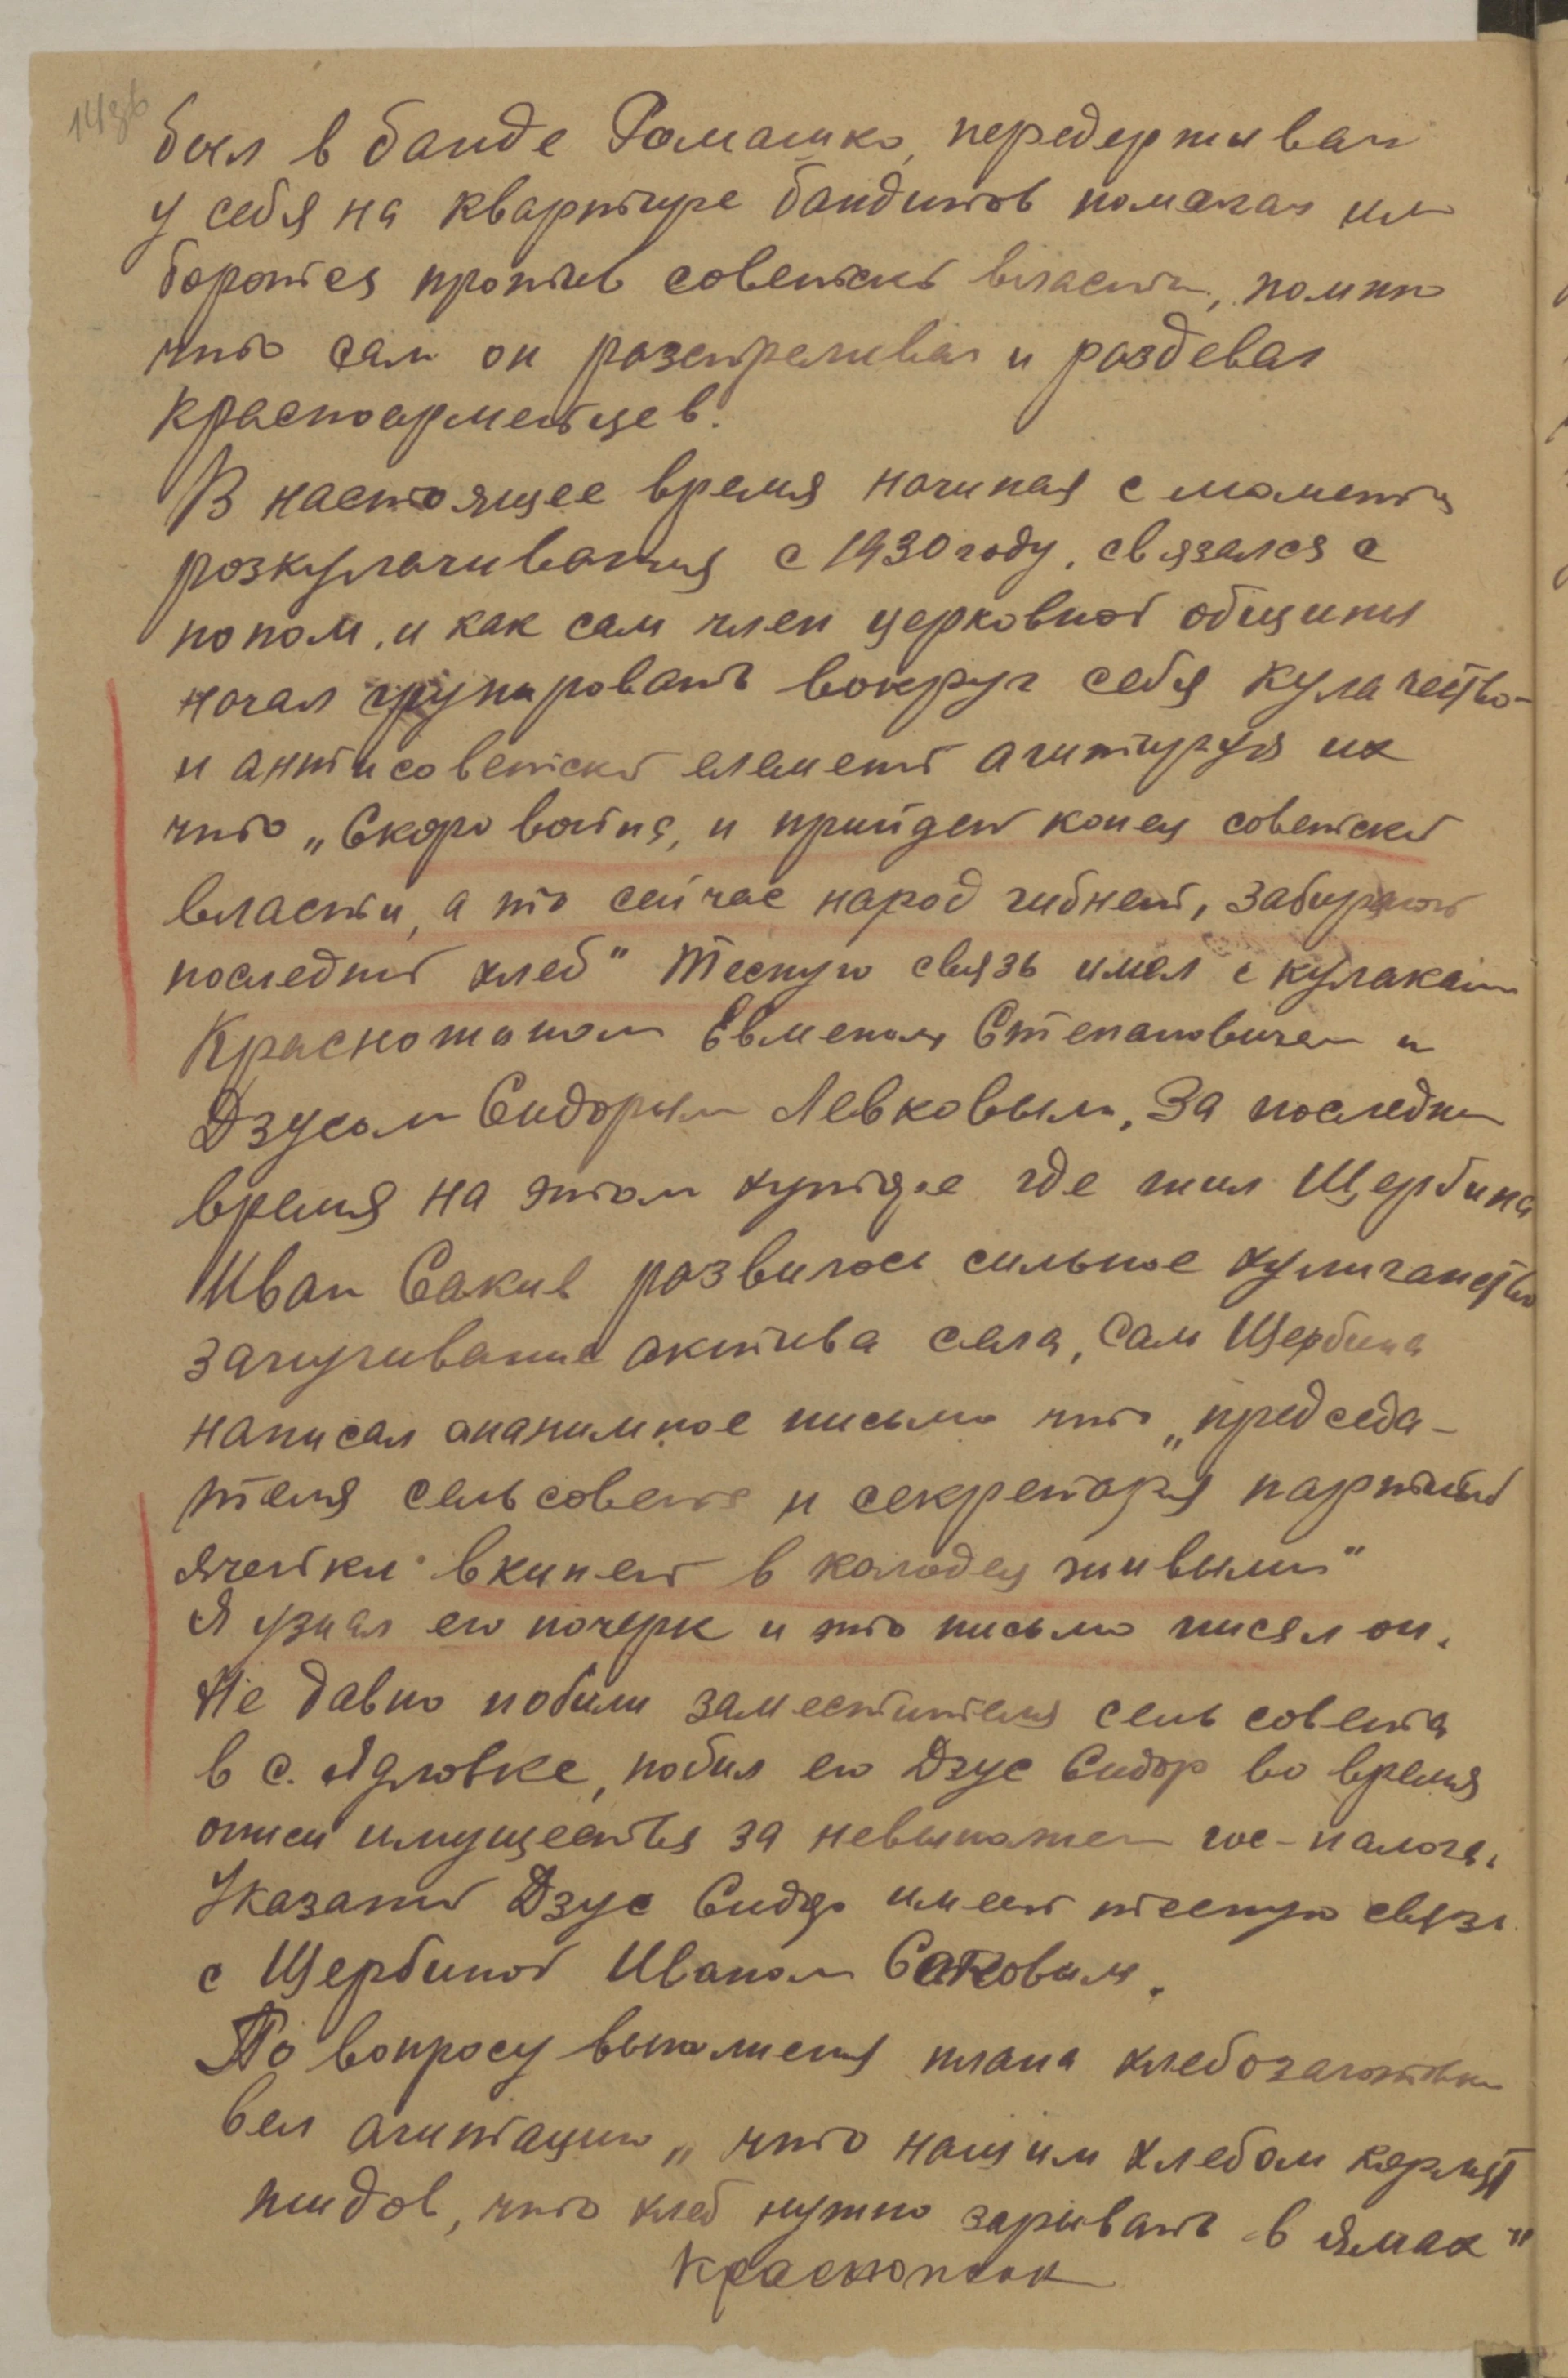 14зв
был в банде Ромашко, передерживал
у себя на квартире бандитов помагал им
боротся против советской власти, помню
что сам он розстреливал и роздевал
красноармейцев.
В настоящее время начиная с момента
розкулачивания с 1930 году, связался с
попом, и как сам член церковной общины
начал групировать вокруг себя кулачество-
и антисоветский елемент агитируя их
что „Скоро война, и прийдет конец советской
власти, а то сейчас народ гибнет, забирают
последний хлеб" Тесную связь имел с кулаками
Красножоном Евменом Степановичем и
Дзусом Сидорым Левковым, За последнее
время на этом хуторе где жил Щербина
Иван Сакив розвилось сильное хулиганство
запугивание актива села, Сам Щербина
написал ананимное письмо что „председа-
теля сельсовета и секретаря партийной
ячейки вкинет в колодец живыми"
Я узнал его почерк и это письмо писал он.
Не давно побили заместителя сельсовета
в с. Ядловке, побил его Дзус Сидор во время
описи имущества за невыполнен гос-налога.
Указаный Дзус Сидор имеет тесную связь
с Щербиной Иваном Саковым.
По вопросу выполнения плана хлебозаготовки
вел агитацию „что нашим хлебом кормят
жидов, что хлеб нужно зарывать в ямах"